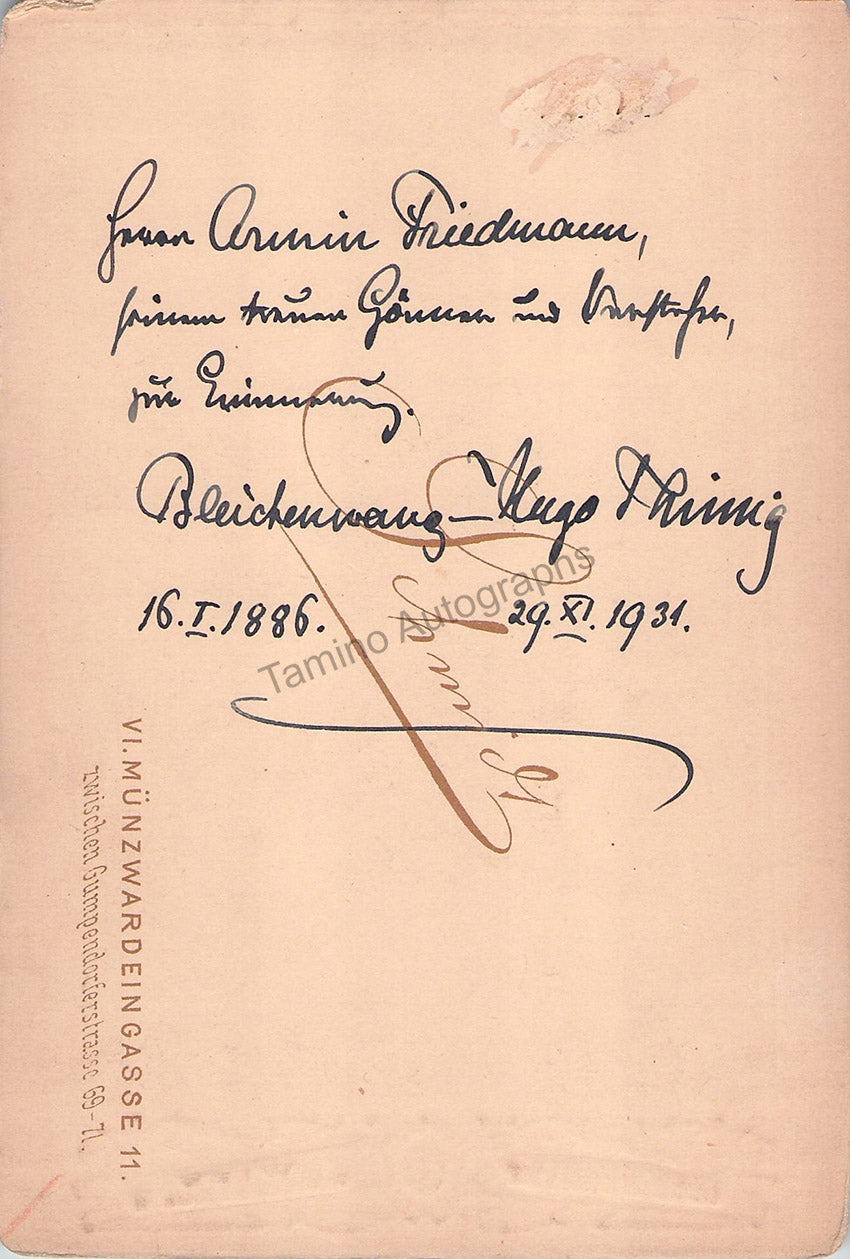 Herrn Armin Friedmann,
seinem treuen Gönner und Versteher,
zur Erinnerung.
Bleichenwang – Hugo Thimig
16. I. 1886. 29. XI. 1931.
Tamino Autographs
VI. MÜNZWARDEINGASSE 11.
zwischen Gumpendorferstrasse 69-71.